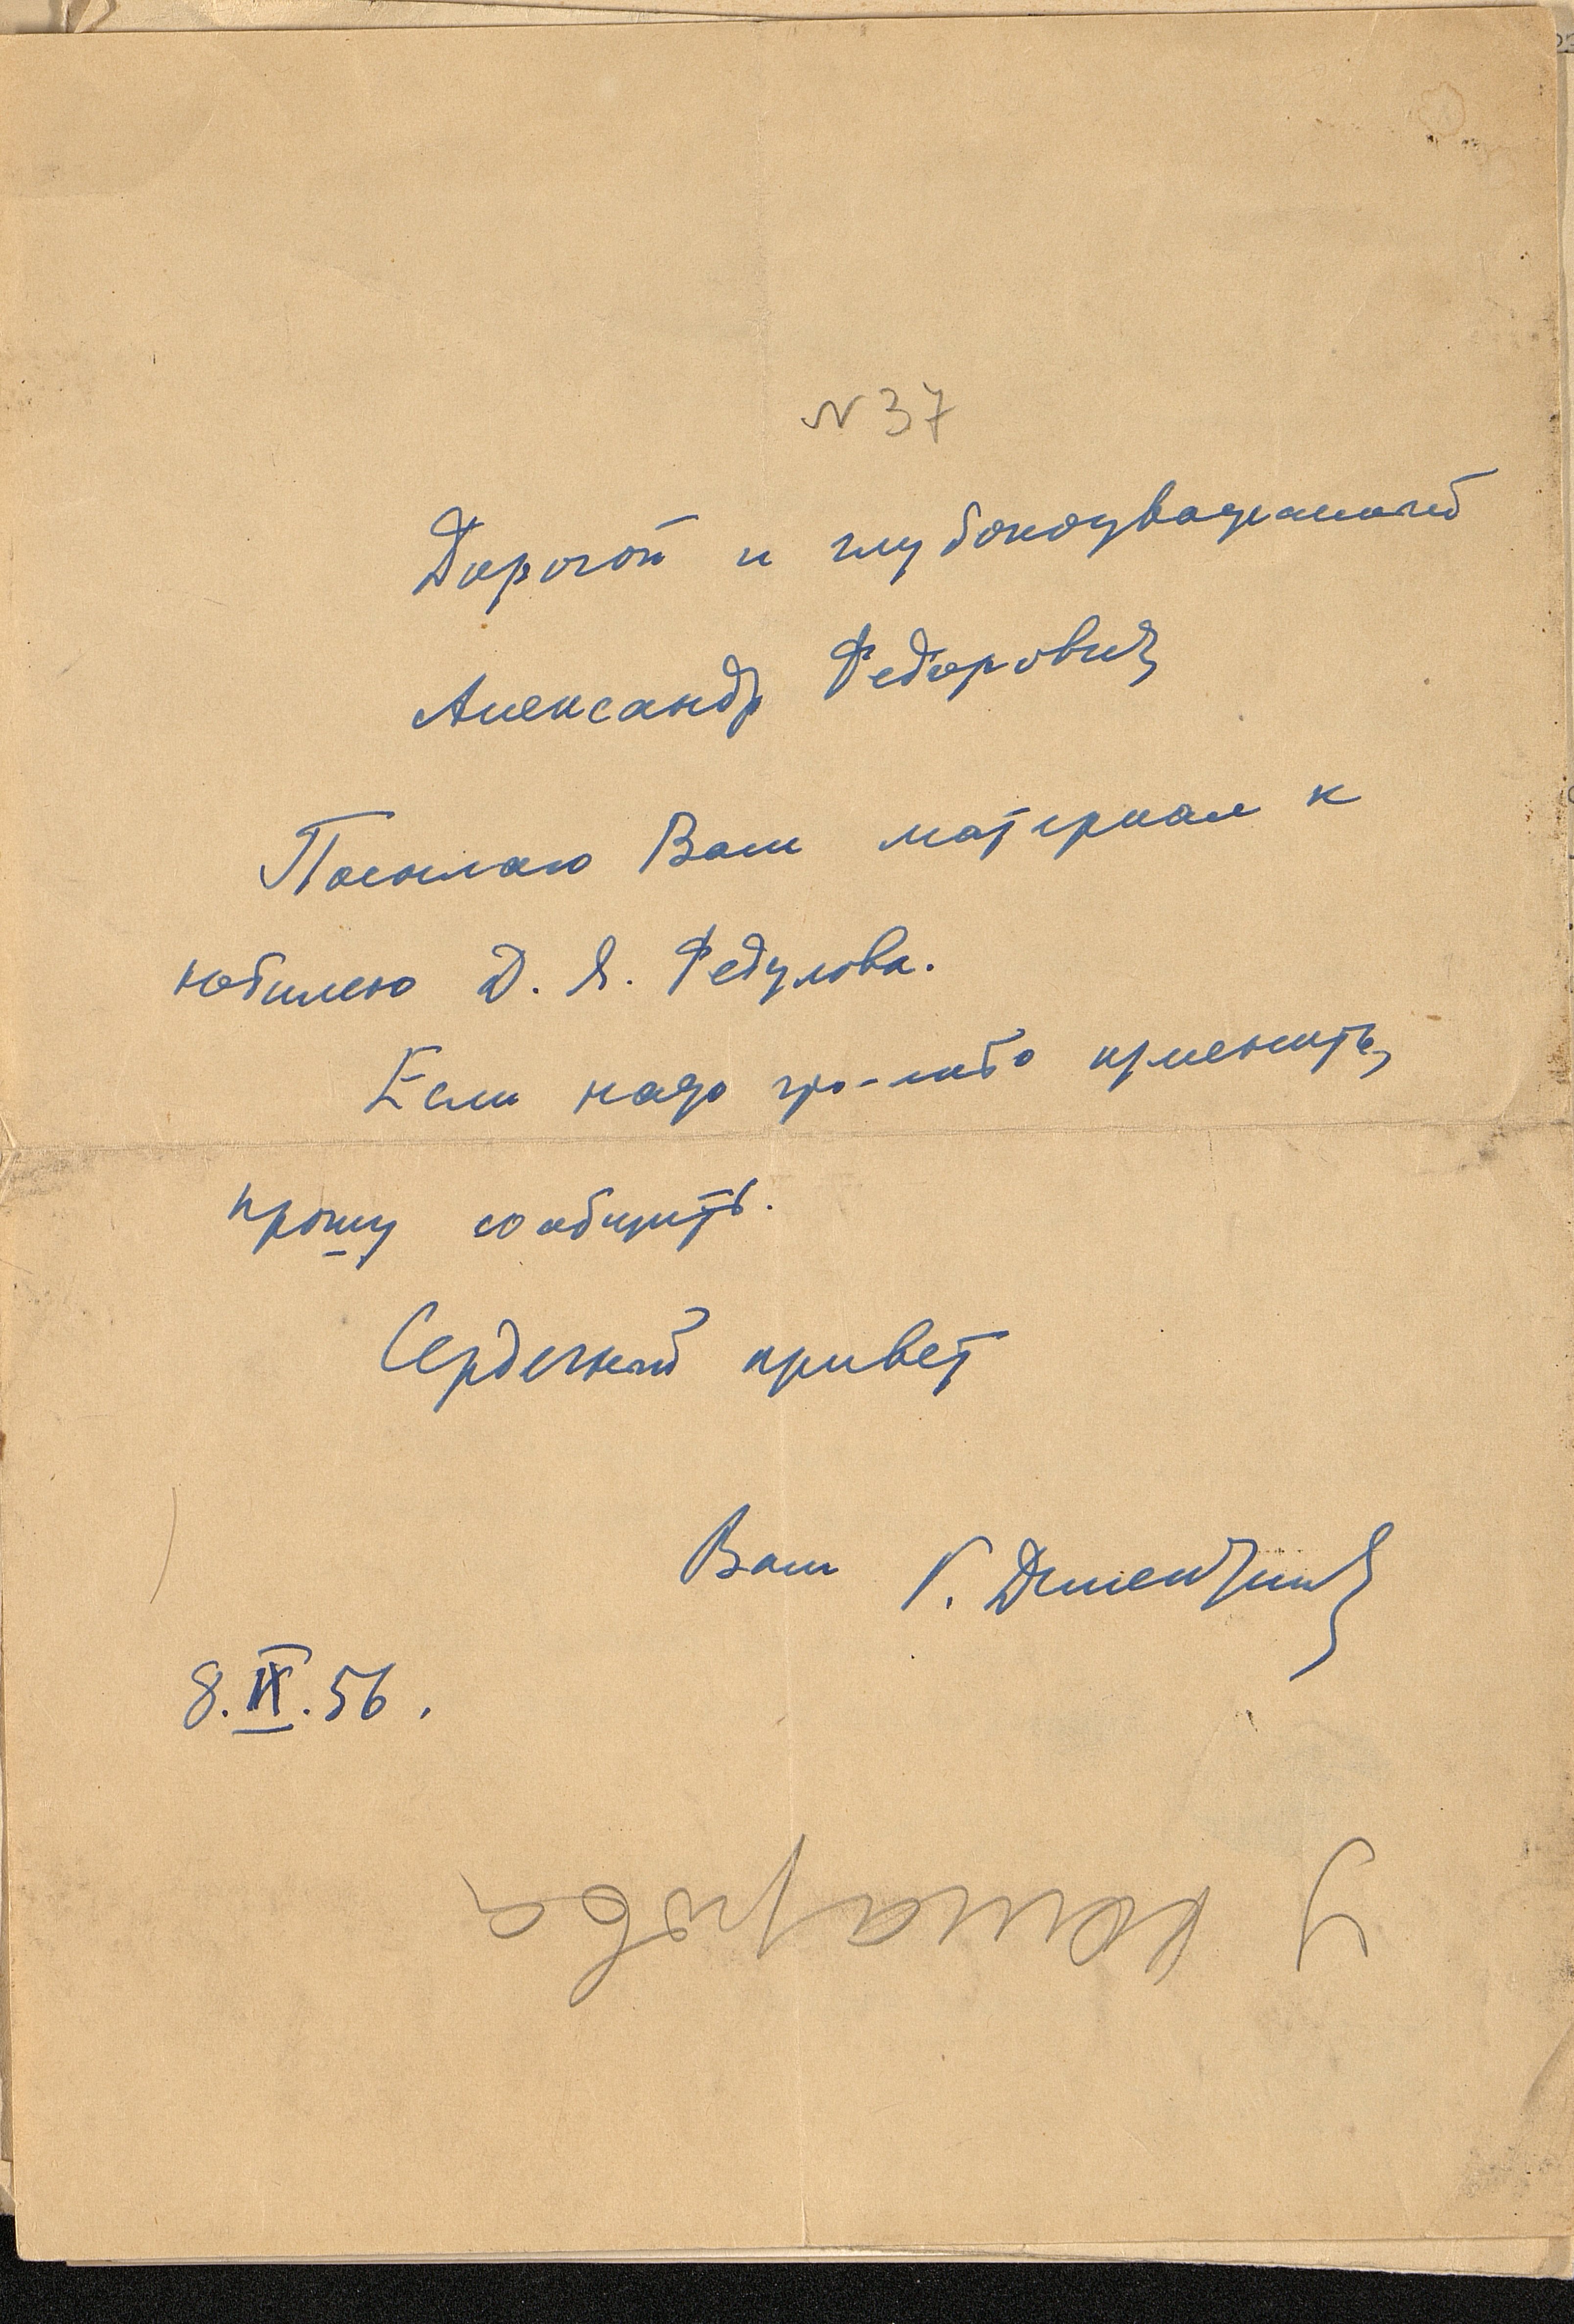 N 37
Дорогой и глубокоуважаемый
Александр Федорович
Посылаю Вам материал к
юбилею Д. Я. Федулова.
Если надо что-либо изменить,
прошу сообщить.
Сердечный привет
Ваш Г. Дементьев
8.IX.56.
У